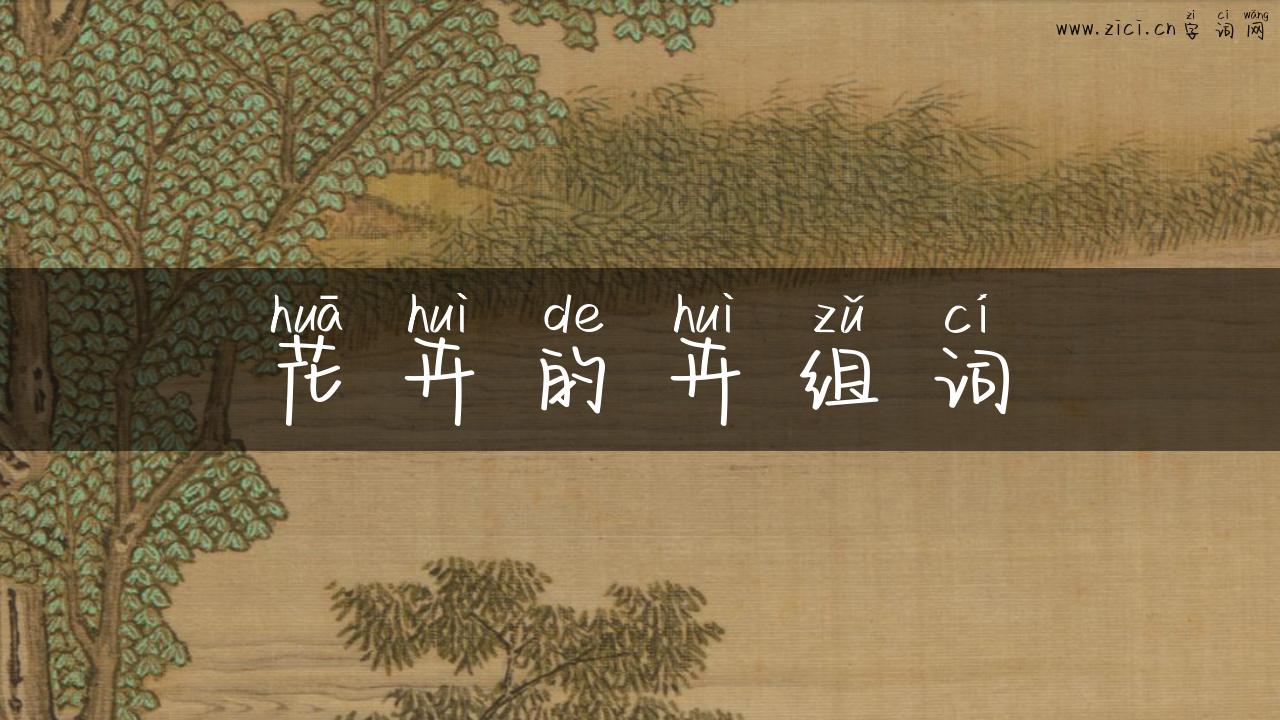 zì cí wǎng
www.zici.cn字词网
huā huì de huì zǔ cí
花卉的卉组词